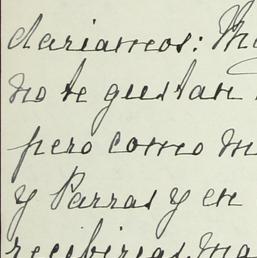 dariamos:
no te gustan
pero como
y Parras y en
recibirias